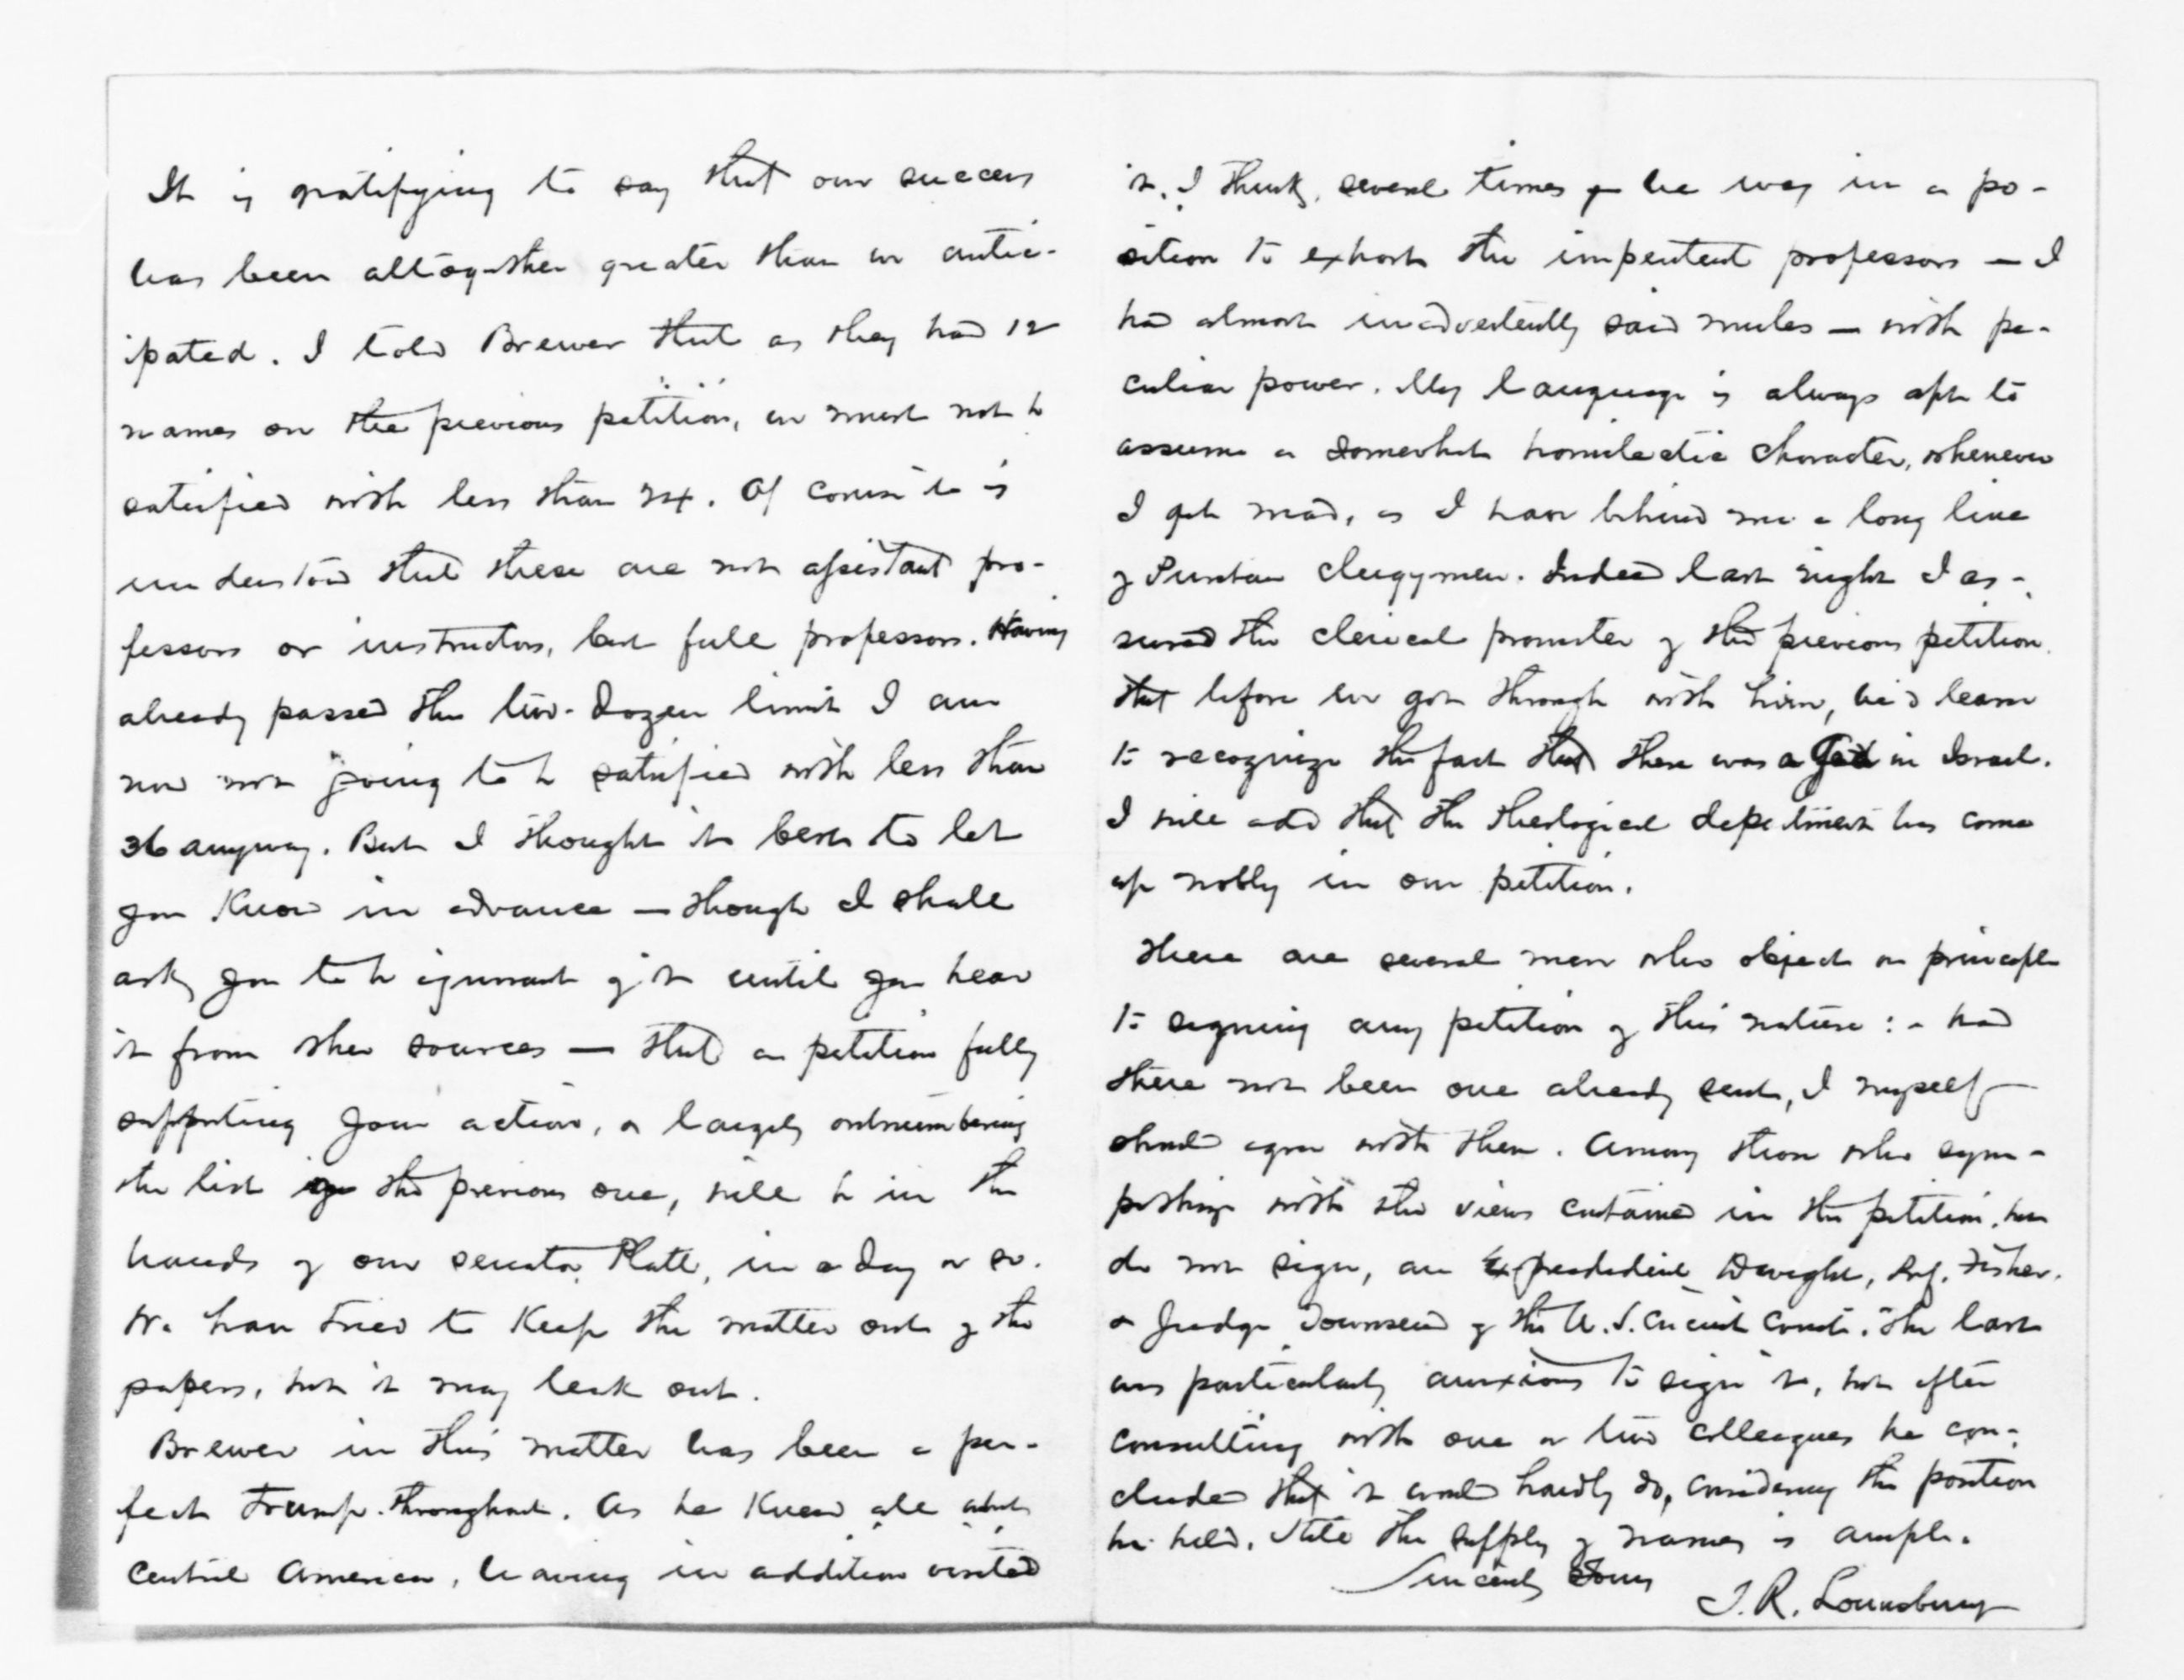 It is gratifying to say that our success
has been altogether greater than we antic-
ipated. I told Brewer that as they had 12
names on the previous petition, we must not be
satisfied with less than 24. Of course it is
understood that these are not assistant pro-
fessors or instructors, but full professors. Having
already passed the two-dozen limit I am
now not going to be satisfied with less than
36 anyway. But I thought it best to let
you know in advance — though I shall
ask you to be ignorant of it until you hear
it from other sources — that a petition fully
supporting your action, & largely outnumbering
the list of the previous one, will be in the
hands of our senator, Platt, in a day or so.
We have tried to keep the matter out of the
papers, but it may leak out.
Brewer in this matter has been a per-
fect trump throughout. As he knew all about
Central America, having in addition visited
it, I think, several times & he was in a po-
sition to exhort the impenitent professors — I
had almost inadvertently said mules — with pe-
culiar power. My language is always apt to
assume a somewhat homiletic character, whenever
I get mad, as I have behind me a long line
of Puritan clergymen. Indeed last night I as-
sured the clerical promoter of the previous petition
that before we got through with him, he'd learn
to recognize the fact that there was a God in Israel.
I will add that the theological department has come
up nobly in our petition.
There are several men who object on principle
to signing any petition of this nature: & had
there not been one already sent, I myself
should agree with them. Among those who sym-
pathize with the views contained in the petition, but
do not sign, are Ex-president Dwight, Prof. Fisher,
& Judge Townsend of the U.S. Circuit Court. The last
was particularly anxious to sign it, but after
consulting with one or two colleagues he con-
cluded that it would hardly do, considering the position
he held. Still the supply of names is ample.
Sincerely Yours
T. R. Lounsbury